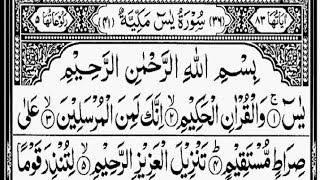 اٰیَاتُهَا ٨٣ (٣٦) سُوْرَةُ یٰسٓ مَكِّیَّةٌ (٤١) رُكُوْعَاتُهَا ٥
بِسْمِ اللّٰهِ الرَّحْمٰنِ الرَّحِیْمِ
یٰسٓ ۚ ١ وَالْقُرْاٰنِ الْحَكِیْمِ ۙ ٢ اِنَّكَ لَمِنَ الْمُرْسَلِیْنَ ۙ ٣ عَلٰی
صِرَاطٍ مُّسْتَقِیْمٍ ؕ ٤ تَنْزِیْلَ الْعَزِیْزِ الرَّحِیْمِ ۙ ٥ لِتُنْذِرَ قَوْمًا